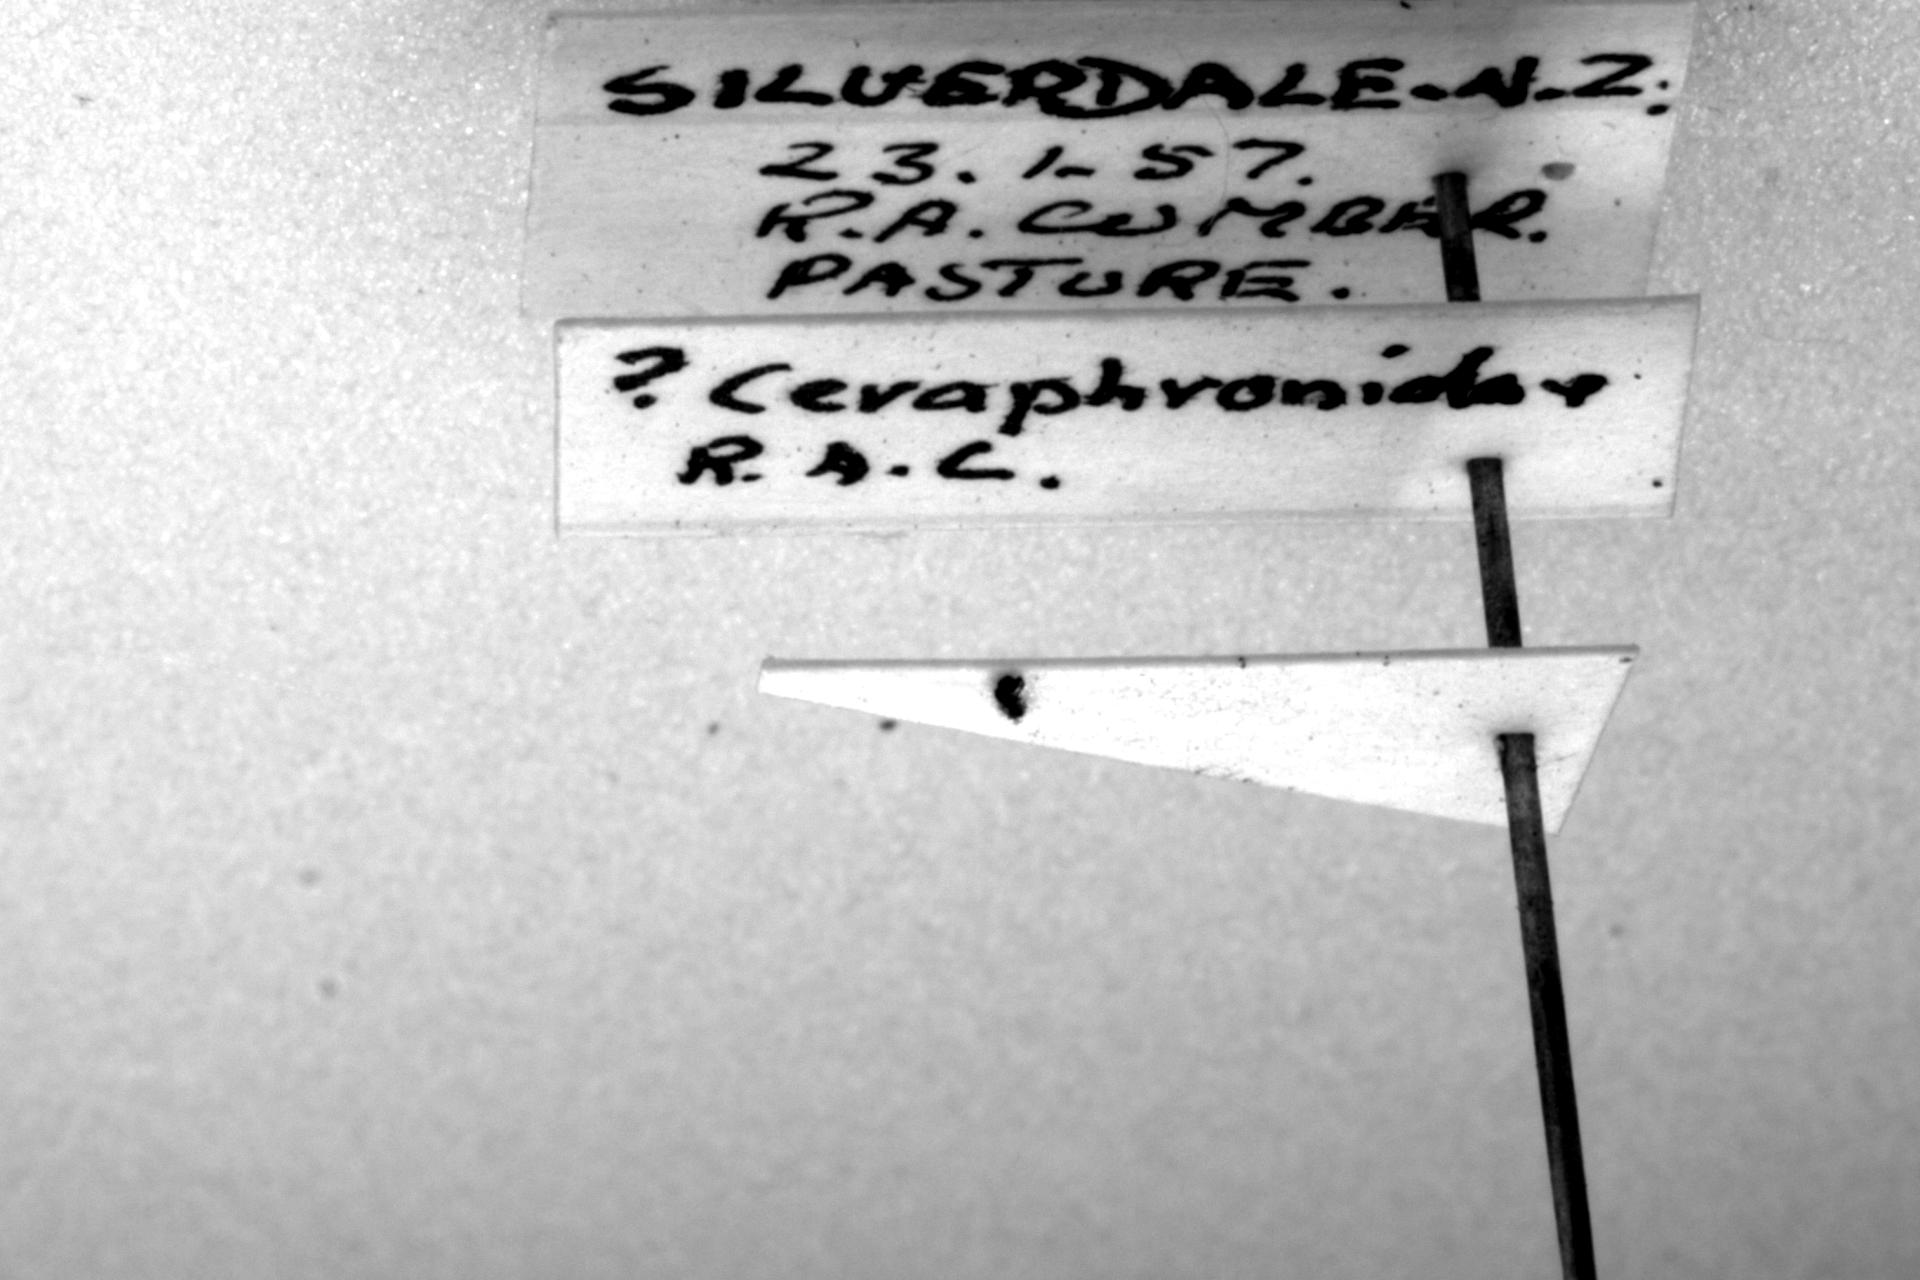 SILVERDALE. N.Z.
23. 1. 57.
R.A. CUMBER.
PASTURE.
? Ceraphronidae
R. A. C.